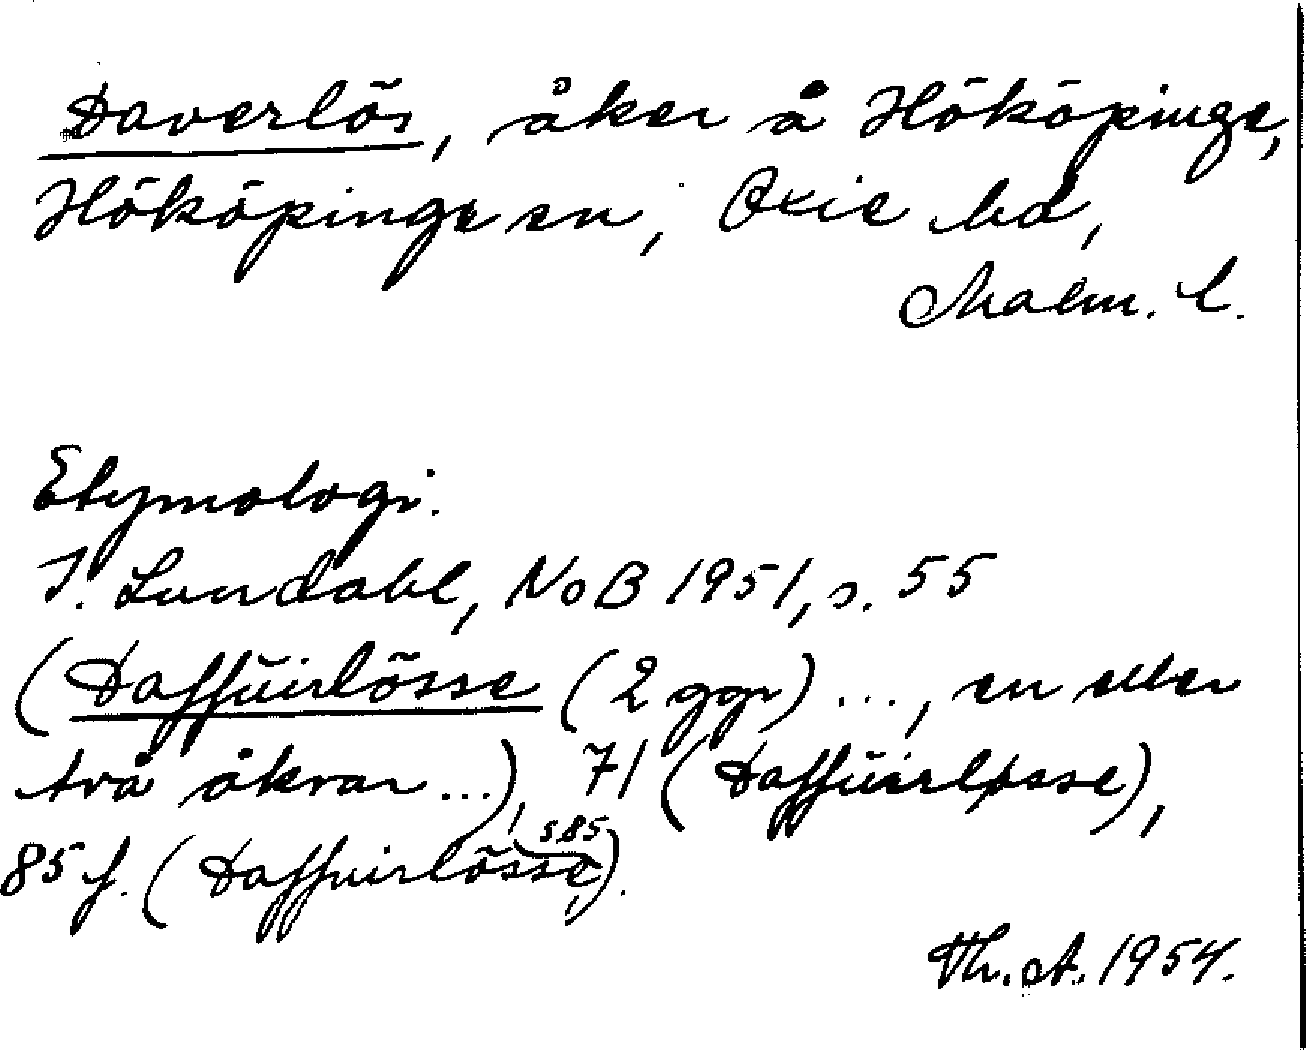 Daverlös, åker å Hököpinge,
Hököpinge sn, Oxie hd,
Malm. l.
Etymologi.
I. Lundahl, NoB 1951, s. 55
(Daffüirlösse (2 ggr) ..., en eller
två åkrar ...), 71 (Daffüirløsse),
s.85
85 f. (Daffuirlösse,).
Th. A. 1954.